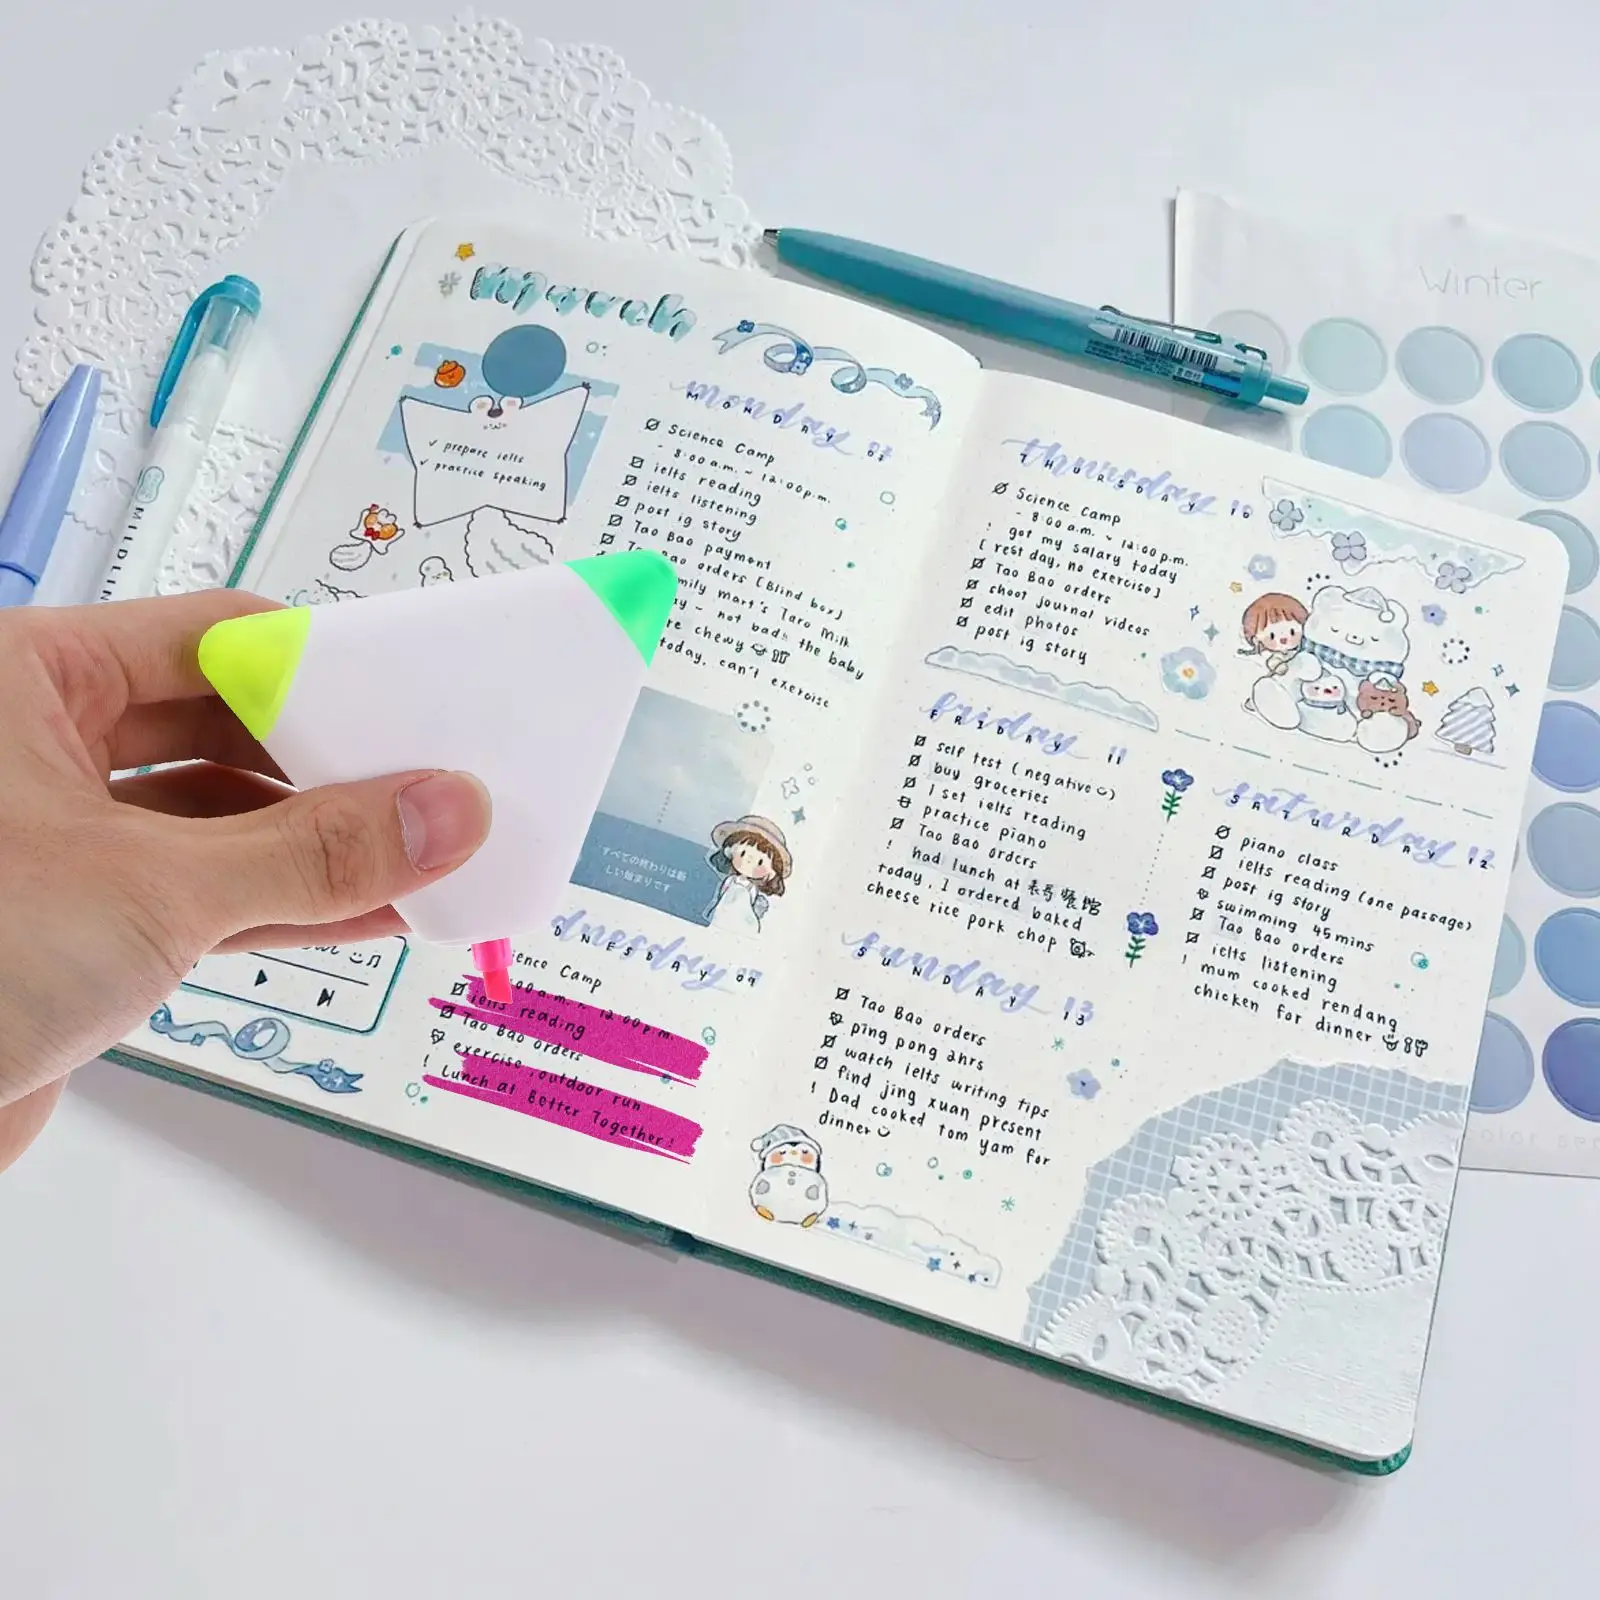 March
✓ prepare ielts
✓ practice speaking
monday
MONDAY 07
Science Camp
- 8:00 a.m. ~ 12:00 p.m.
ielts reading
ielts listening
post ig story
Tao Bao payment
Tao Bao orders [Blind box]
mart's Taro Milk
- not bad!! the baby
chewy
today, can't exercise
すべての終わりは新
しい始まりです
09
Science Camp
12:00 p.m.
ielts reading
Tao Bao orders
exercise, outdoor run
! Lunch at Better Together!
thursday
THURSDAY 10
Science Camp
- 8:00 a.m. ~ 12:00 p.m.
! got my salary today
[rest day, no exercise]
Tao Bao orders
shoot journal videos
edit photos
post ig story
friday
FRIDAY 11
self test (negative)
buy groceries
1 set ielts reading
practice piano
Tao Bao orders
! had lunch at
today, I ordered baked
cheese rice pork chop
saturday
SATURDAY 12
piano class
ielts reading (one passage)
post ig story
swimming 45mins
Tao Bao orders
ielts listening
! mum cooked rendang
chicken for dinner
sunday
SUNDAY 13
Tao Bao orders
ping pong 2hrs
watch ielts writing tips
find jing xuan present
! Dad cooked tom yam for
dinner
MILDLIN
Winter